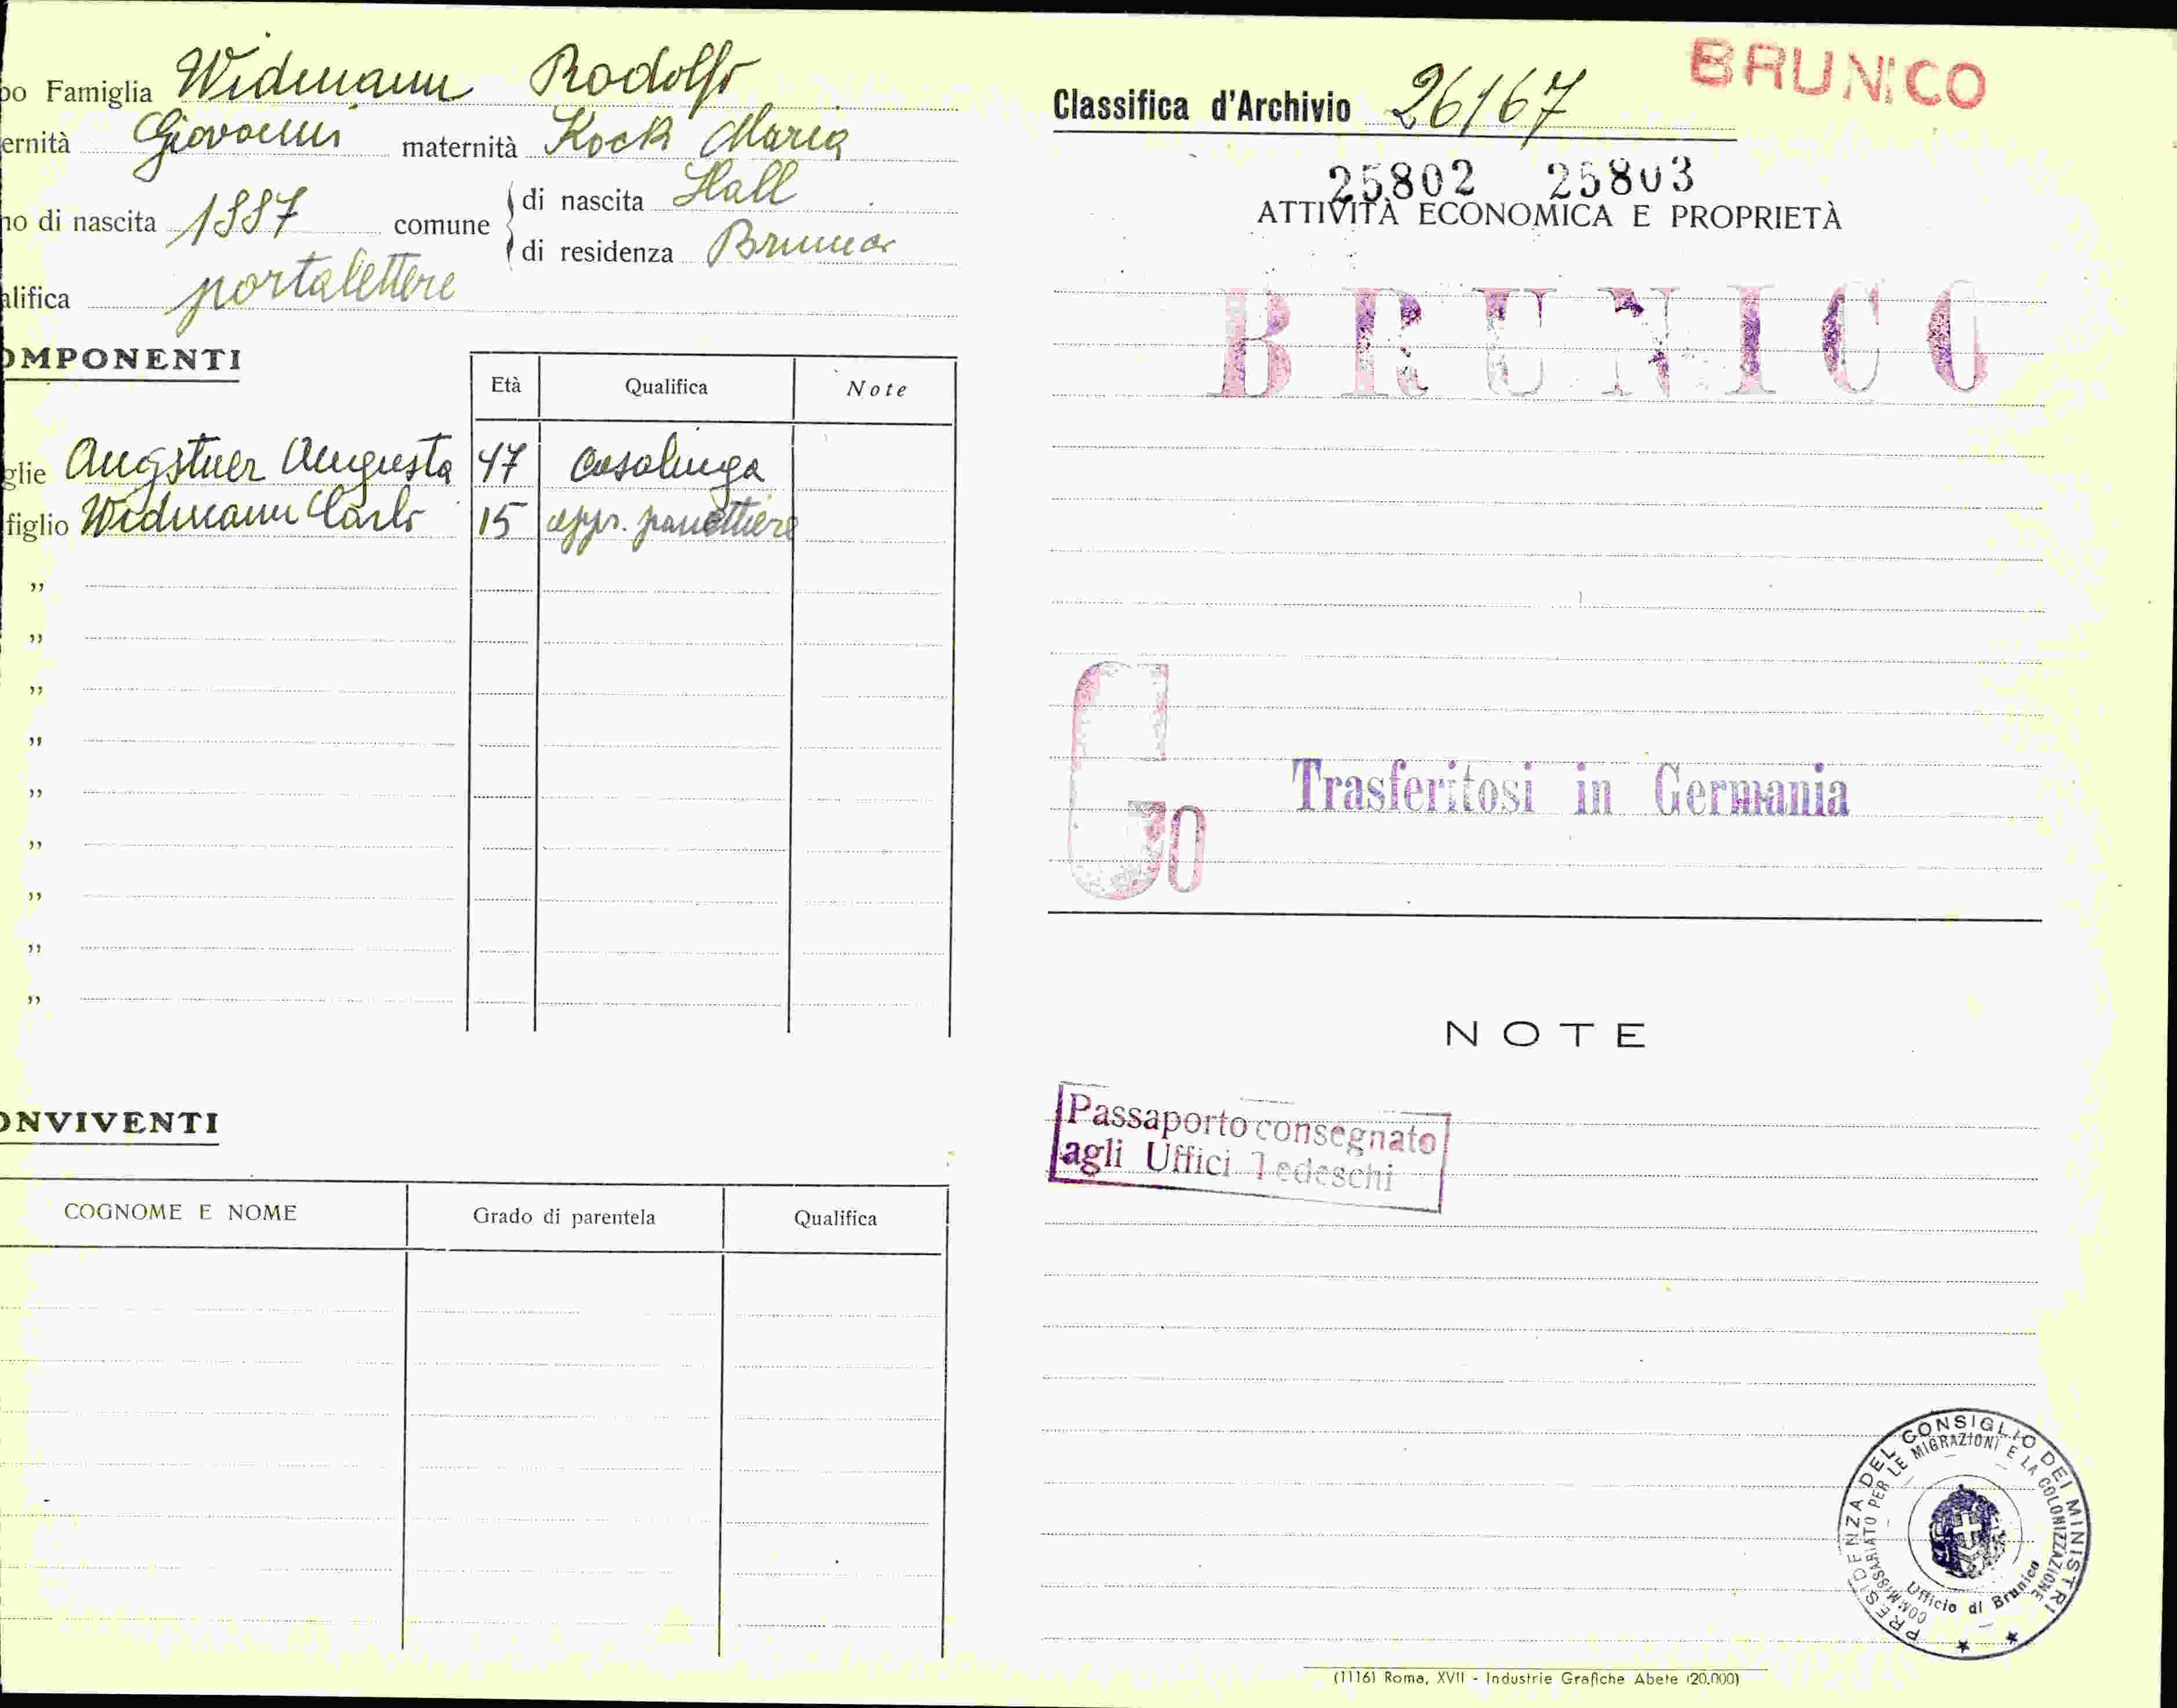 po Famiglia Widmann Rodolfo
ernità Giovanni maternità Kock Maria
no di nascita 1887 comune di nascita Hall
di residenza Brunico
alifica portalettere
OMPONENTI
Età Qualifica Note
glie Augstner Augusta 47 casalinga
figlio Widmann Carlo 15 appr. panettiere
”
”
”
”
”
”
”
”
”
ONVIVENTI
COGNOME E NOME Grado di parentela Qualifica
BRUNICO
Classifica d'Archivio 26167
25802 25803
ATTIVITÀ ECONOMICA E PROPRIETÀ
BRUNICO
G 30
Trasferitosi in Germania
NOTE
Passaporto consegnato
agli Uffici Tedeschi
PRESIDENZA DEL CONSIGLIO DEI MINISTRI
COMMISSARIATO PER LE MIGRAZIONI E LA COLONIZZAZIONE
Ufficio di Brunico
(1116) Roma, XVII - Industrie Grafiche Abete (20.000)